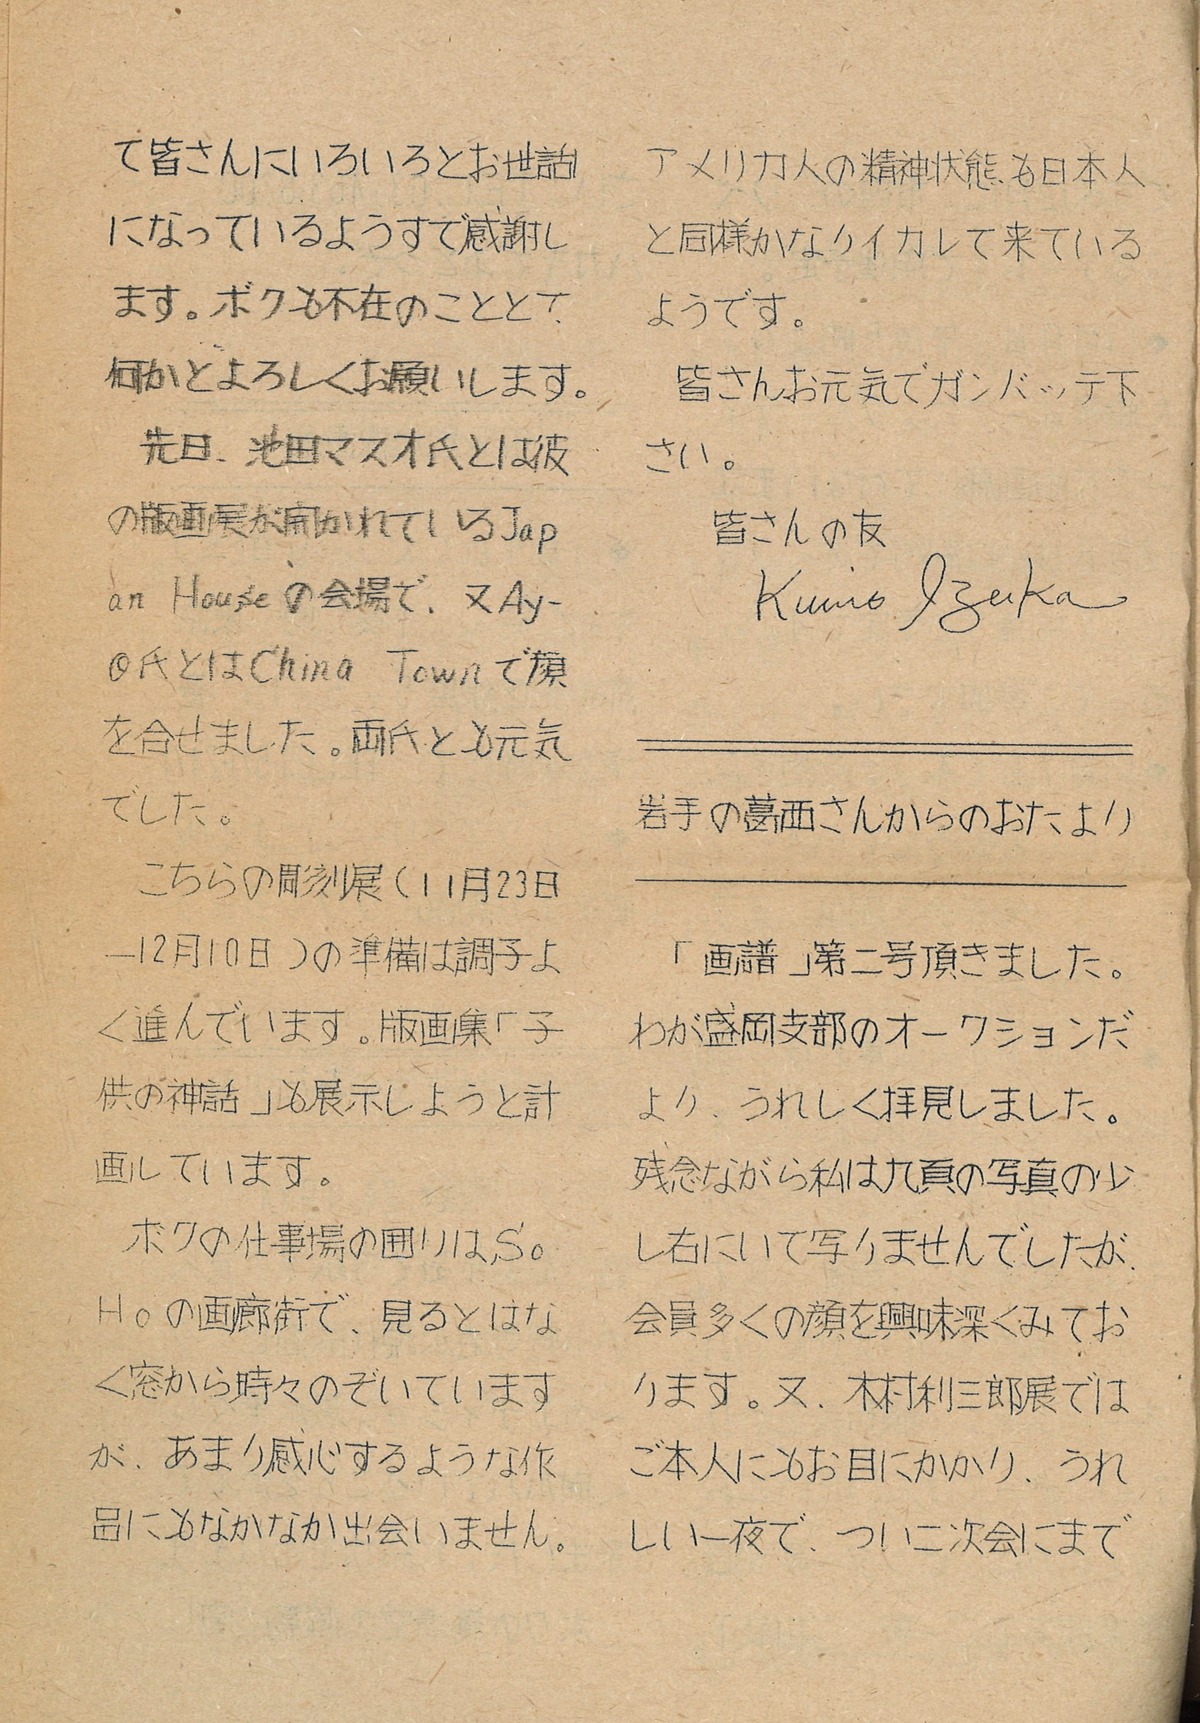 て皆さんにいろいろとお世話
になっているようすで感謝し
ます。ボクも不在のこととて、
何かとよろしくお願いします。
先日、池田マスオ氏とは彼
の版画展が開かれているJap
an Houseの会場で、又Ay-
O氏とはChina Townで顔
を合せました。両氏とも元気
でした。
こちらの彫刻展(11月23日
―12月10日)の準備は調子よ
く進んでいます。版画集「子
供の神話」も展示しようと計
画しています。
ボクの仕事場の囲りは、So
Hoの画廊街で、見るとはな
く窓から時々のぞいています
が、あまり感心するような作
品にもなかなか出会いません。
アメリカ人の精神状態も日本人
と同様かなりイカレて来ている
ようです。
皆さんお元気でガンバッテ下
さい。
皆さんの友
Kunio Izuka
岩手の葛西さんからのおたより
「画譜」第二号頂きました。
わが盛岡支部のオークションだ
より、うれしく拝見しました。
残念ながら私は九頁の写真の少
し右にいて写りませんでしたが、
会員多くの顔を興味深くみてお
ります。又、木村利三郎展では
ご本人にもお目にかかり、うれ
しい一夜で、つい二次会にまで